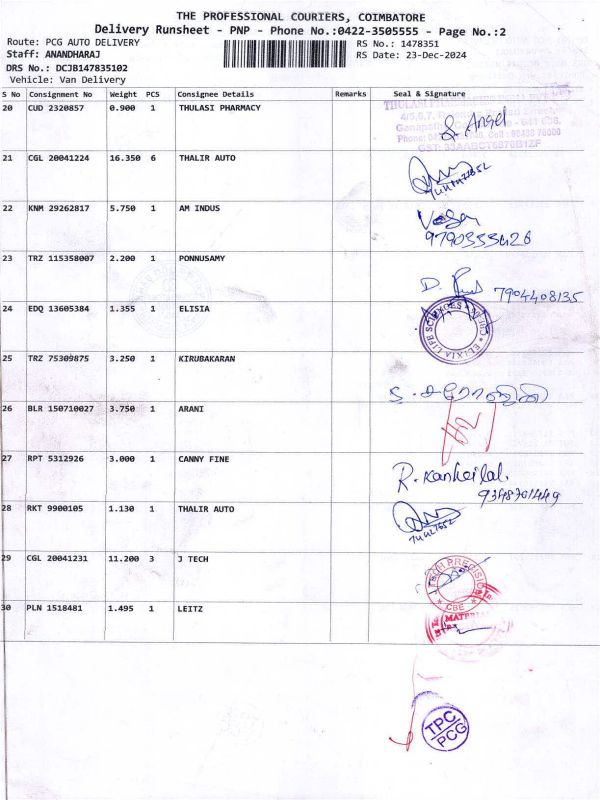 THE PROFESSIONAL COURIERS, COIMBATORE
Delivery Runsheet - PNP - Phone No.:0422-3505555 - Page No.:2
Route: PCG AUTO DELIVERY
RS No.: 1478351
Staff: ANANDHARAJ
RS Date: 23-Dec-2024
DRS No.: DCJB147835102
Vehicle: Van Delivery
S No Consignment No Weight PCS Consignee Details Remarks Seal & Signature
20 CUD 2320857 0.900 1 THULASI PHARMACY
S. Angel
21 CGL 20041224 16.350 6 THALIR AUTO
22 KNM 29262817 5.750 1 AM INDUS
9790333426
23 TRZ 115358007 2.200 1 PONNUSAMY
D. 7904408135
24 EDQ 13605384 1.355 1 ELISIA
ELIXIA LIFE SCIENCES
25 TRZ 75309875 3.250 1 KIRUBAKARAN
26 BLR 150710027 3.750 1 ARANI
27 RPT 5312926 3.000 1 CANNY FINE
R.
28 RKT 9900105 1.130 1 THALIR AUTO
29 CGL 20041231 11.200 3 J TECH
J TECH PRECISION
CBE
30 PLN 1518481 1.495 1 LEITZ
MATERIAL
TPC
PCG